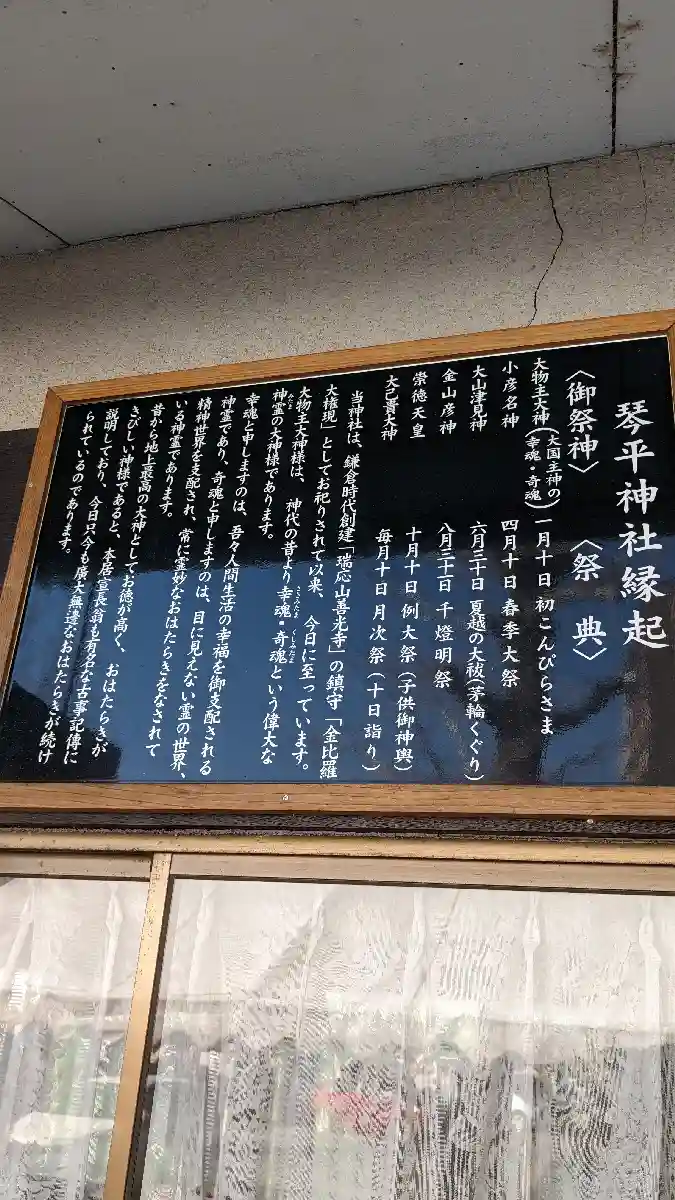 琴平神社縁起
〈御祭神〉
〈祭典〉
大物主大神(大国主神の幸魂・奇魂)
一月十日 初こんぴらさま
小彦名神
四月十日 春季大祭
大山津見神
六月三十日 夏越の大祓(茅輪くぐり)
金山彦神
八月三十一日 千燈明祭
崇徳天皇
十月十日 例大祭(子供御神輿)
大己貴大神
毎月十日 月次祭(十日詣り)
当神社は、鎌倉時代創建「瑞応山善光寺」の鎮守「金比羅
大権現」としてお祀りされて以来、今日に至っています。
大物主大神様は、神代の昔より幸魂・奇魂という偉大な
さきみたま くしみたま
神霊の大神様であります。
みたま
幸魂と申しますのは、吾々人間生活の幸福を御支配される
神霊であり、奇魂と申しますのは、目に見えない霊の世界、
精神世界を支配され、常に霊妙なおはたらきをなされて
いる神霊であります。
昔から地上最高の大神としてお徳が高く、おはたらきが
きびしい神様であると、本居宣長翁も有名な古事記傳に
説明しており、今日只今も廣大無邊なおはたらきが続け
られているのであります。